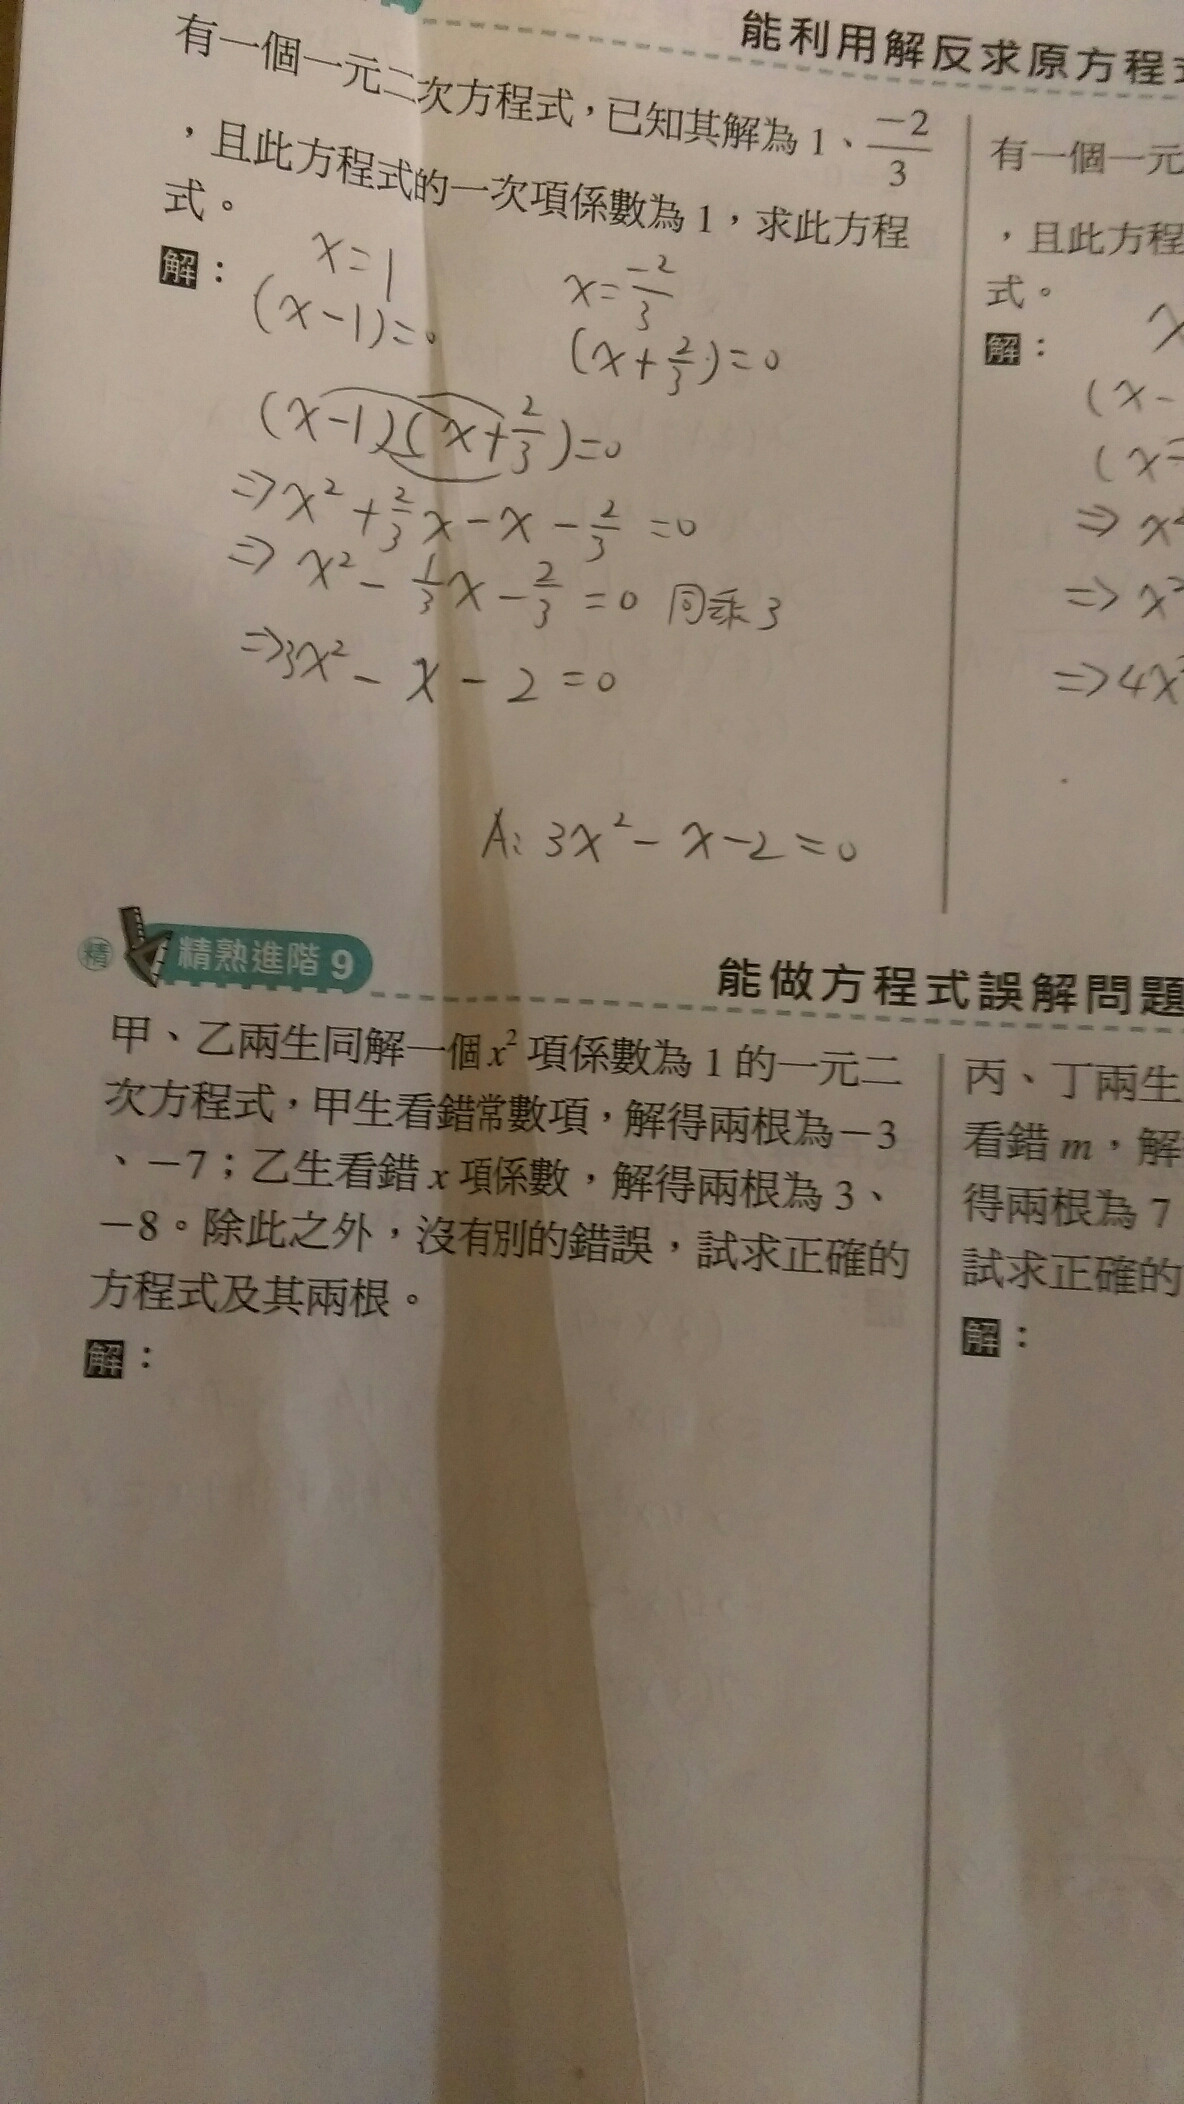 能利用解反求原方程
有一個一元二次方程式，已知其解為 1、\frac{-2}{3}
，且此方程式的一次項係數為 1，求此方程
式。
解：
x=1
x=\frac{-2}{3}
(x-1)=0
(x+\frac{2}{3})=0
(x-1)(x+\frac{2}{3})=0
⇒x²+\frac{2}{3}x-x-\frac{2}{3}=0
⇒x²-\frac{1}{3}x-\frac{2}{3}=0 同乘3
⇒3x²-x-2=0
A: 3x²-x-2=0
有一個一元
，且此方程
式。
解：
x
(x-
(x=
⇒x²
⇒x²
⇒4x²
精 精熟進階 9
能做方程式誤解問題
甲、乙兩生同解一個 x² 項係數為 1 的一元二
次方程式，甲生看錯常數項，解得兩根為－3
、－7；乙生看錯 x 項係數，解得兩根為 3、
－8。除此之外，沒有別的錯誤，試求正確的
方程式及其兩根。
解：
丙、丁兩生
看錯 m，解
得兩根為 7
試求正確的
解：